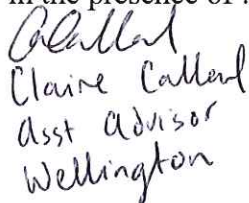 in the presence of :
Claire Callard
Asst Advisor
Wellington